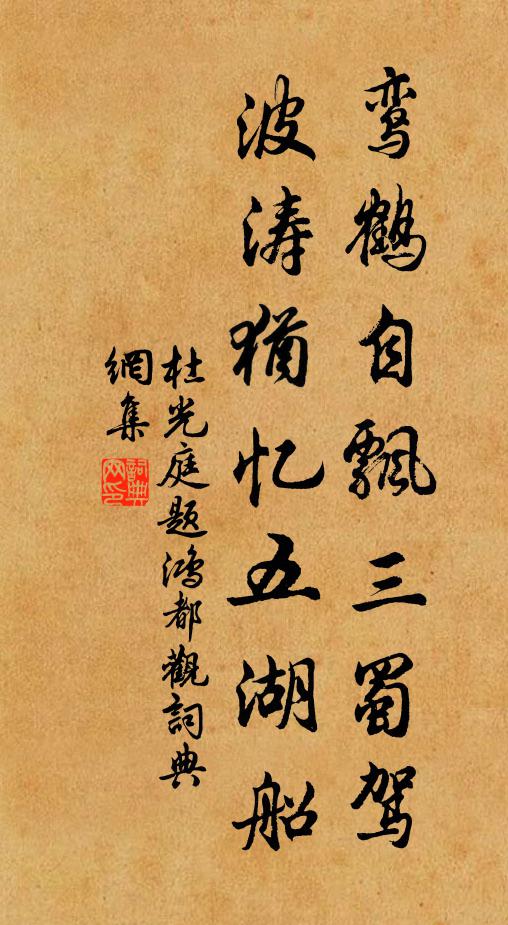 鸾鹤自飘三蜀驾
波涛犹忆五湖船
杜光庭题鸿都觀詞典
網集
詞典
网印